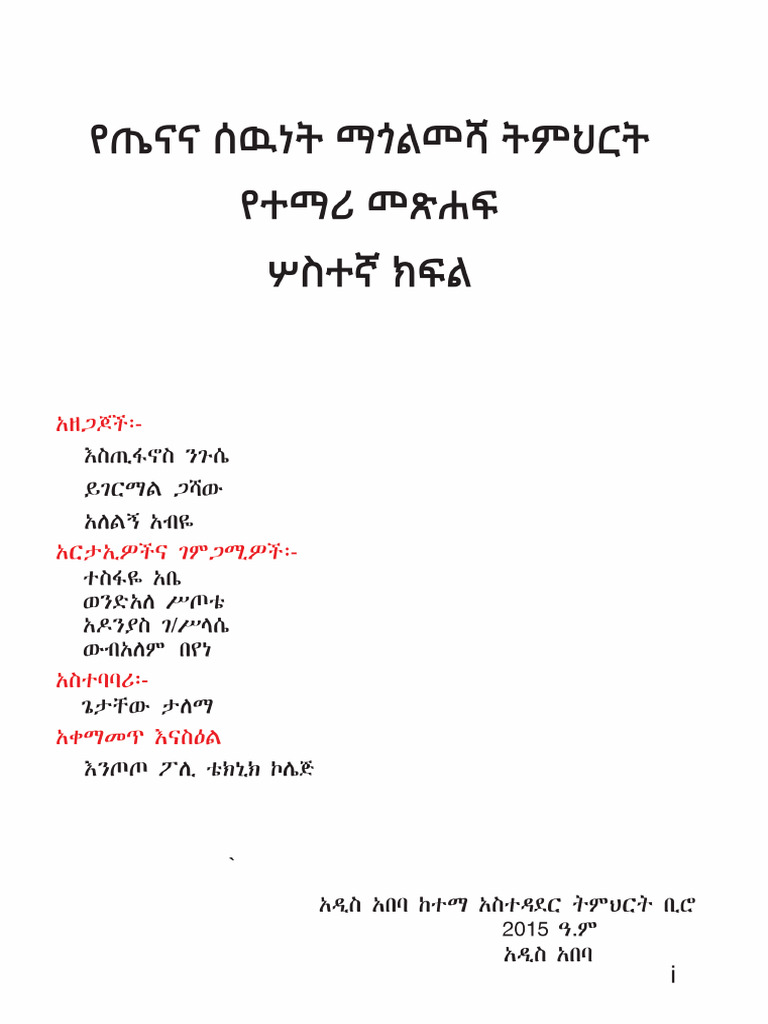 የጤናና ሰዉነት ማጎልመሻ ትምህርት
የተማሪ መጽሐፍ
ሦስተኛ ክፍል
አዘጋጆች፡-
እስጢፋኖስ ንጉሴ
ይገርማል ጋሻው
አለልኝ አብዬ
አርታኢዎችና ገምጋሚዎች፡-
ተስፋዬ አቤ
ወንድአለ ሥጦቴ
አዶንያስ ገ/ሥላሴ
ውብአለም በየነ
አስተባባሪ፡-
ጌታቸው ታለማ
አቀማመጥ እናስዕል
እንጦጦ ፖሊ ቴክኒክ ኮሌጅ
`
አዲስ አበባ ከተማ አስተዳደር ትምህርት ቢሮ
2015 ዓ.ም
አዲስ አበባ
i